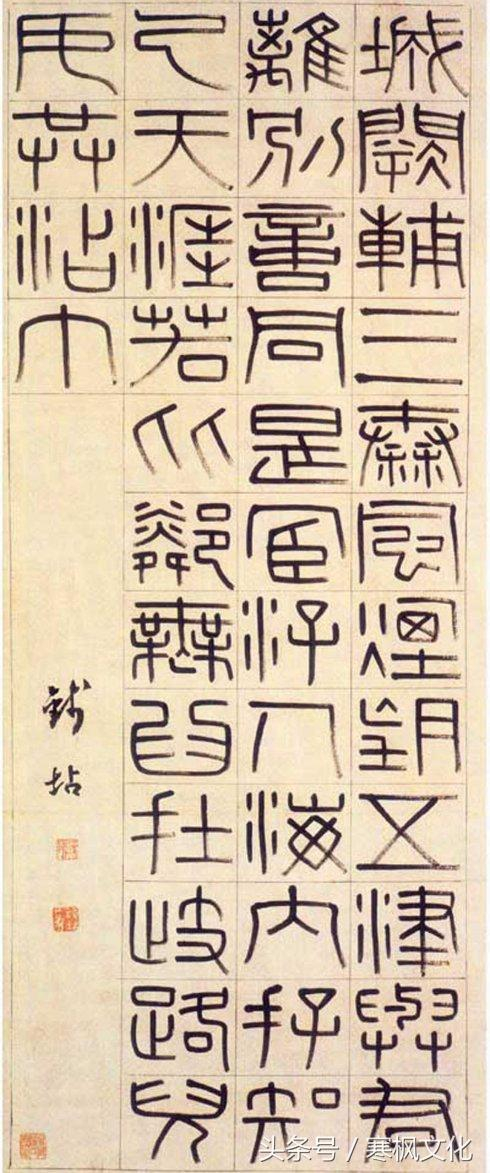 城闕輔三秦風煙望五津與君
離別意同是宦游人海內存知
己天涯若比鄰無為在歧路兒
女共沾巾
錢坫
头条号 / 寒枫文化